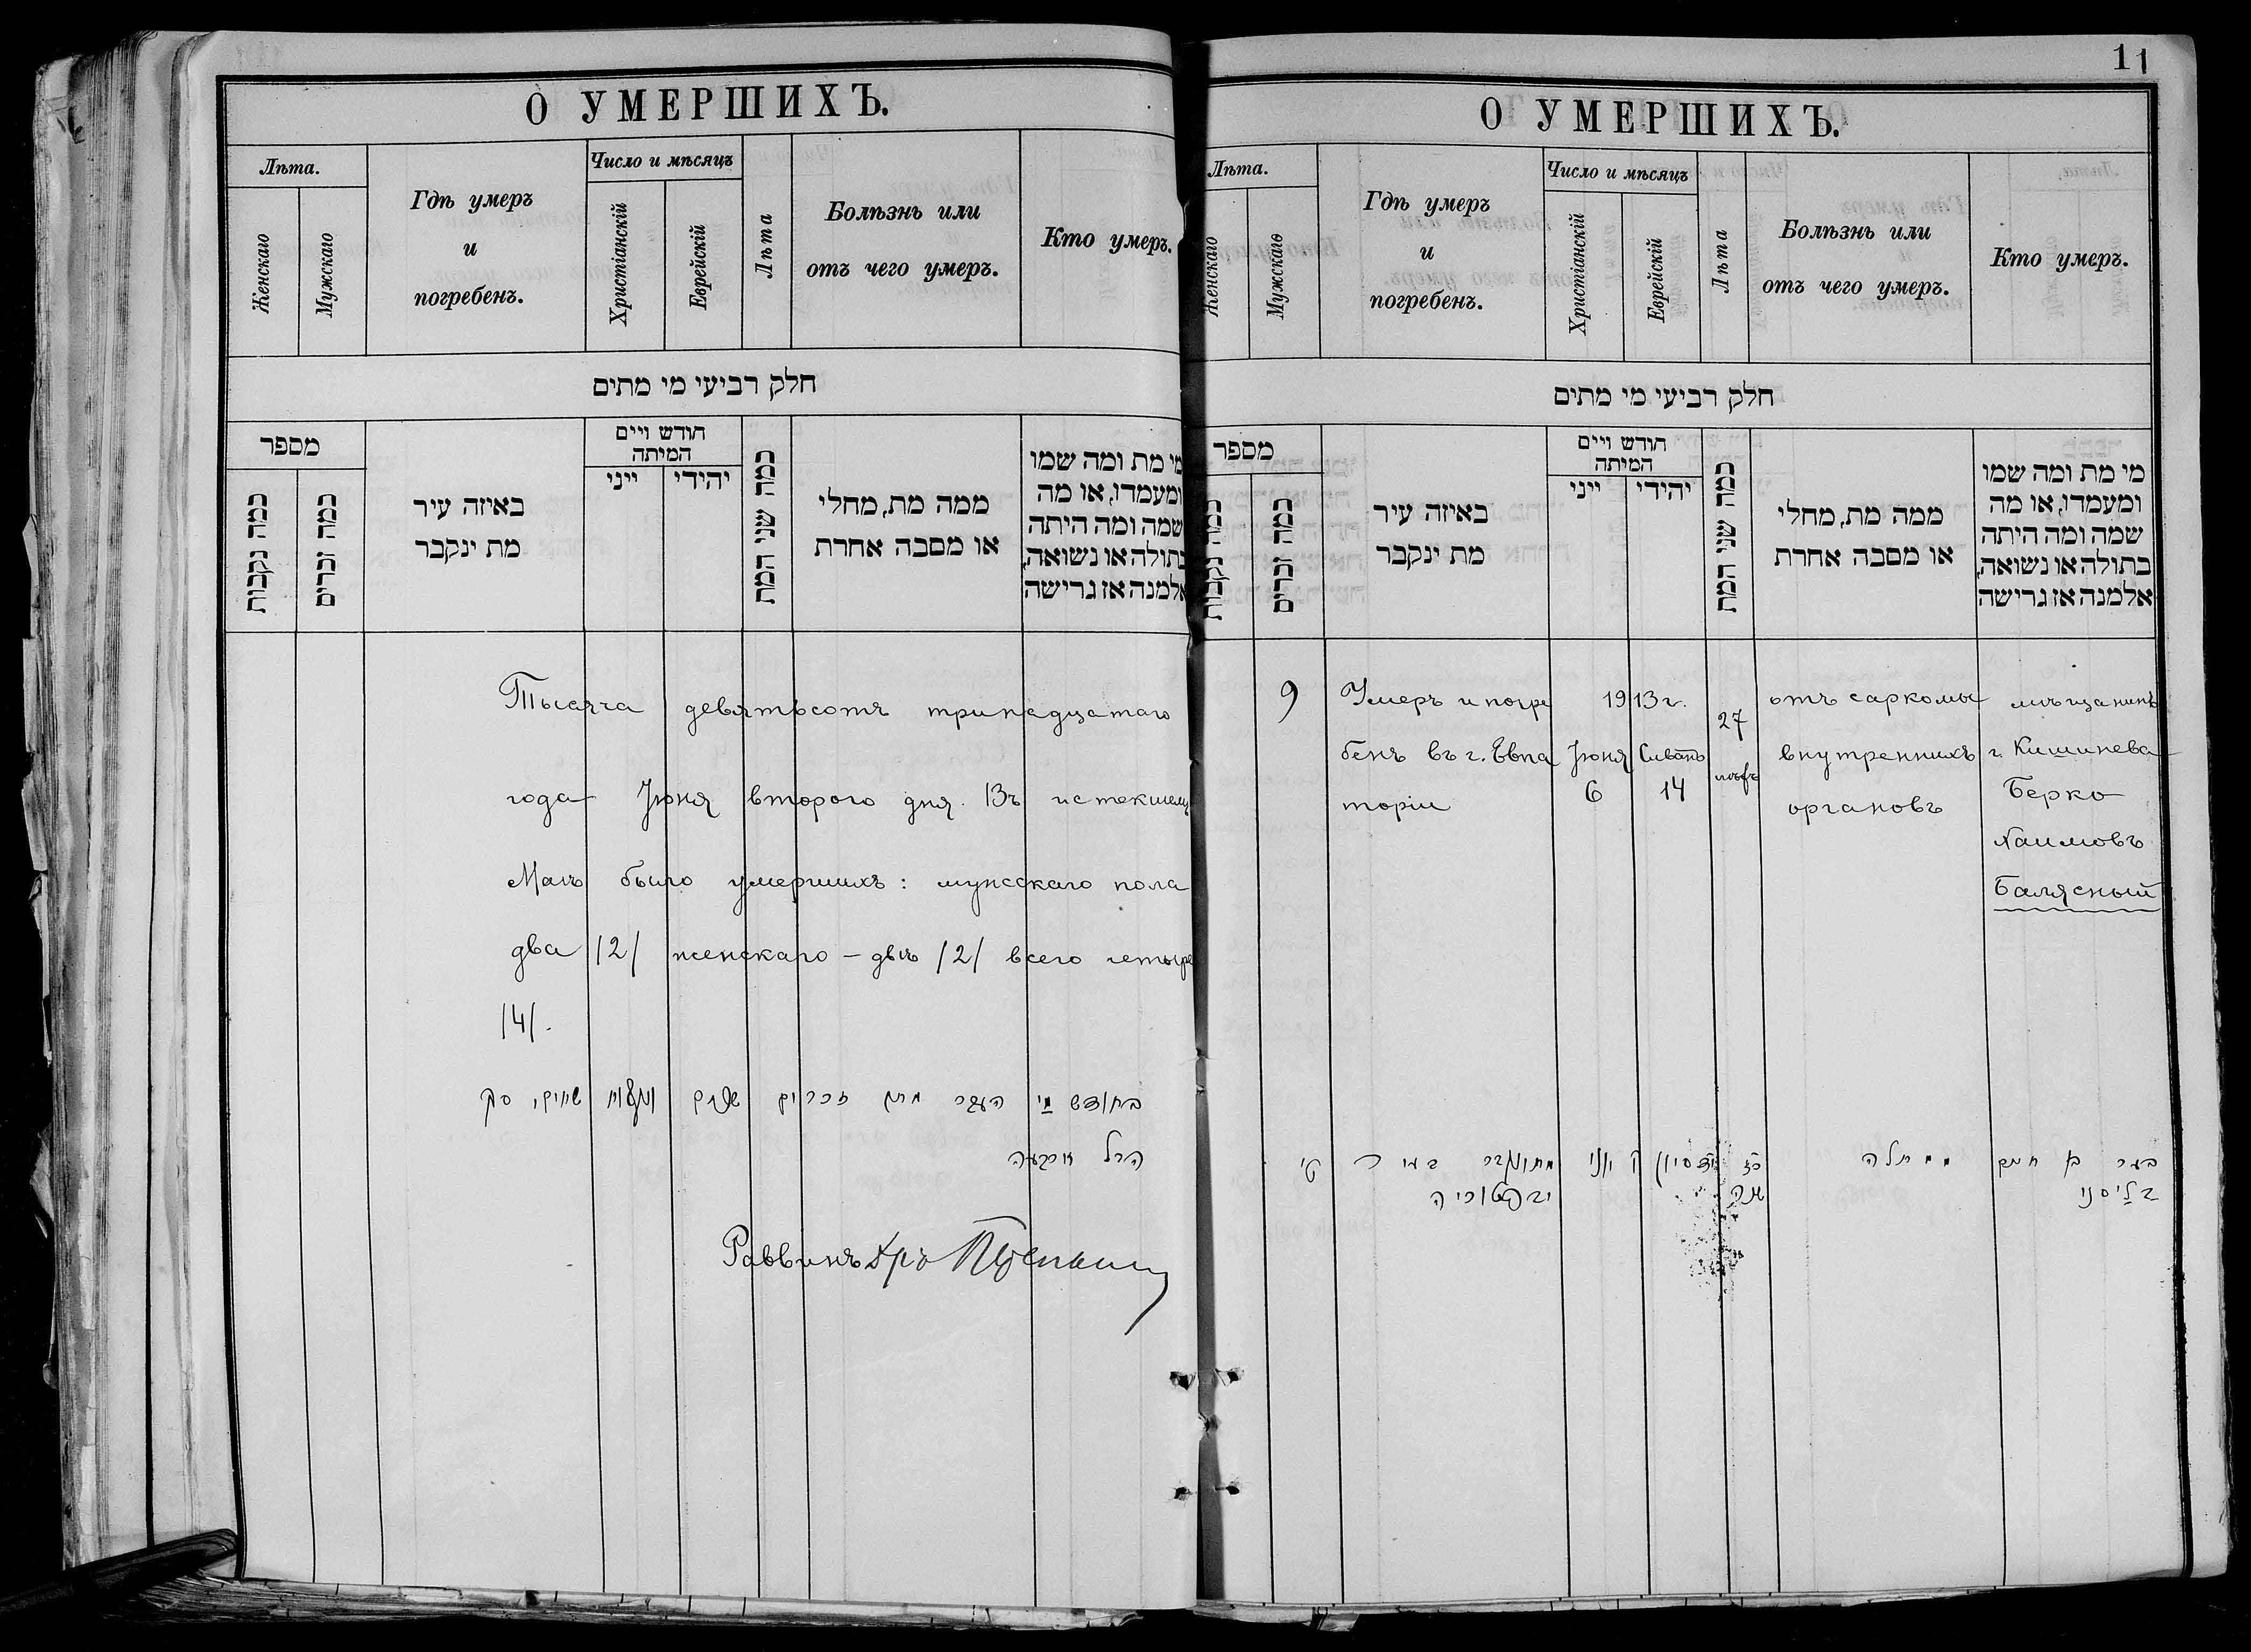 О УМЕРШИХЪ.
Лѣта.
Женскаго
Мужскаго
Гдѣ умеръ
и
погребенъ.
Число и мѣсяцъ
Христіанскій
Еврейскій
Лѣта
Болѣзнь или
отъ чего умеръ.
Кто умеръ.
חלק רביעי מי מתים
מספר
כמה נקבות
כמה זכרים
באיזה עיר
מת ינקבר
חודש ויים
המיתה
ייני
יהידי
כמה שני המת
ממה מת, מחלי
או מסבה אחרת
מי מת ומה שמו
ומעמדו, או מה
שמה ומה היתה
בתולה או נשואה,
אלמנה אז גרישה
Тысяча девятьсотъ тринадцатаго
года Іюня второго дня. Въ истекшемъ
Маѣ было умершихъ: мужскаго пола
два /2/ женскаго – двѣ /2/ всего четыре
/4/.
בחודש מי העבר מתו זכרים שנים
הכל ארבעה
Раввинъ Д-ръ
11
О УМЕРШИХЪ.
Лѣта.
Женскаго
Мужскаго
Гдѣ умеръ
и
погребенъ.
Число и мѣсяцъ
Христіанскій
Еврейскій
Лѣта
Болѣзнь или
отъ чего умеръ.
Кто умеръ.
חלק רביעי מי מתים
מספר
כמה נקבות
כמה זכרים
באיזה עיר
מת ינקבר
חודש ויים
המיתה
ייני
יהידי
כמה שני המת
ממה מת, מחלי
או מסבה אחרת
מי מת ומה שמו
ומעמדו, או מה
שמה ומה היתה
בתולה או נשואה,
אלמנה אז גרישה
9
Умеръ и погре
бенъ въ г. Евпа
торіи
1913 г.
Іюня
6
Сиванъ
14
27
лѣтъ
отъ саркомы
внутреннихъ
органовъ
мѣщанинъ
г. Кишинева
Берко
Хаимовъ
Балясный
בער בן חיים
בליסני
ממחלה
כז
שנה
יד סיון
ו יוני